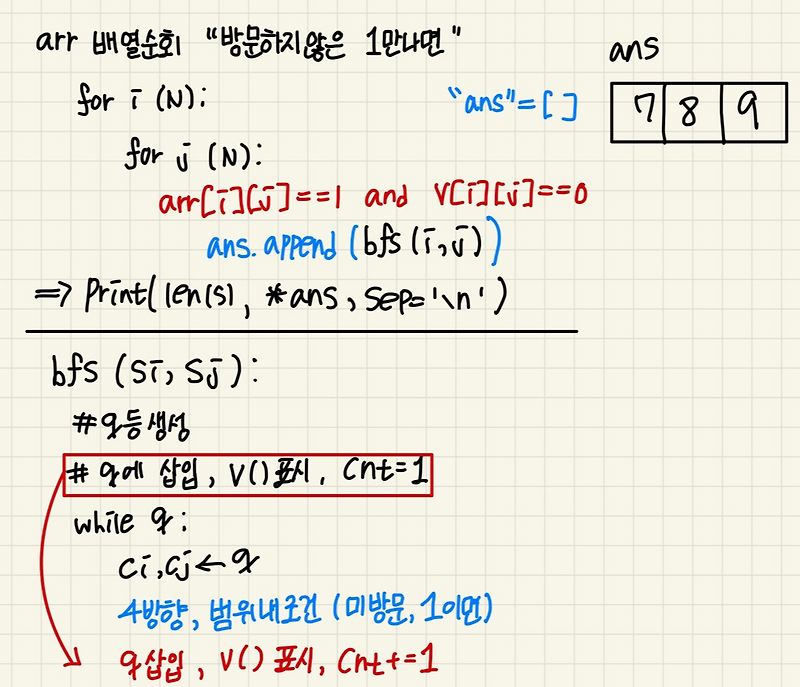 arr 배열순회 "방문하지않은 1만나면"
for i (N):
"ans"=[ ]
ans
7 8 9
for j (N):
arr[i][j]==1 and v[i][j]==0
ans.append(bfs(i,j))
=> Print(len(s), *ans, sep='\n')
bfs (si, sj):
#q등생성
# q에 삽입, v() 표시, cnt=1
while q:
ci,cj←q
4방향, 범위내조건 (미방문, 1이면)
q삽입, v() 표시, cnt+=1